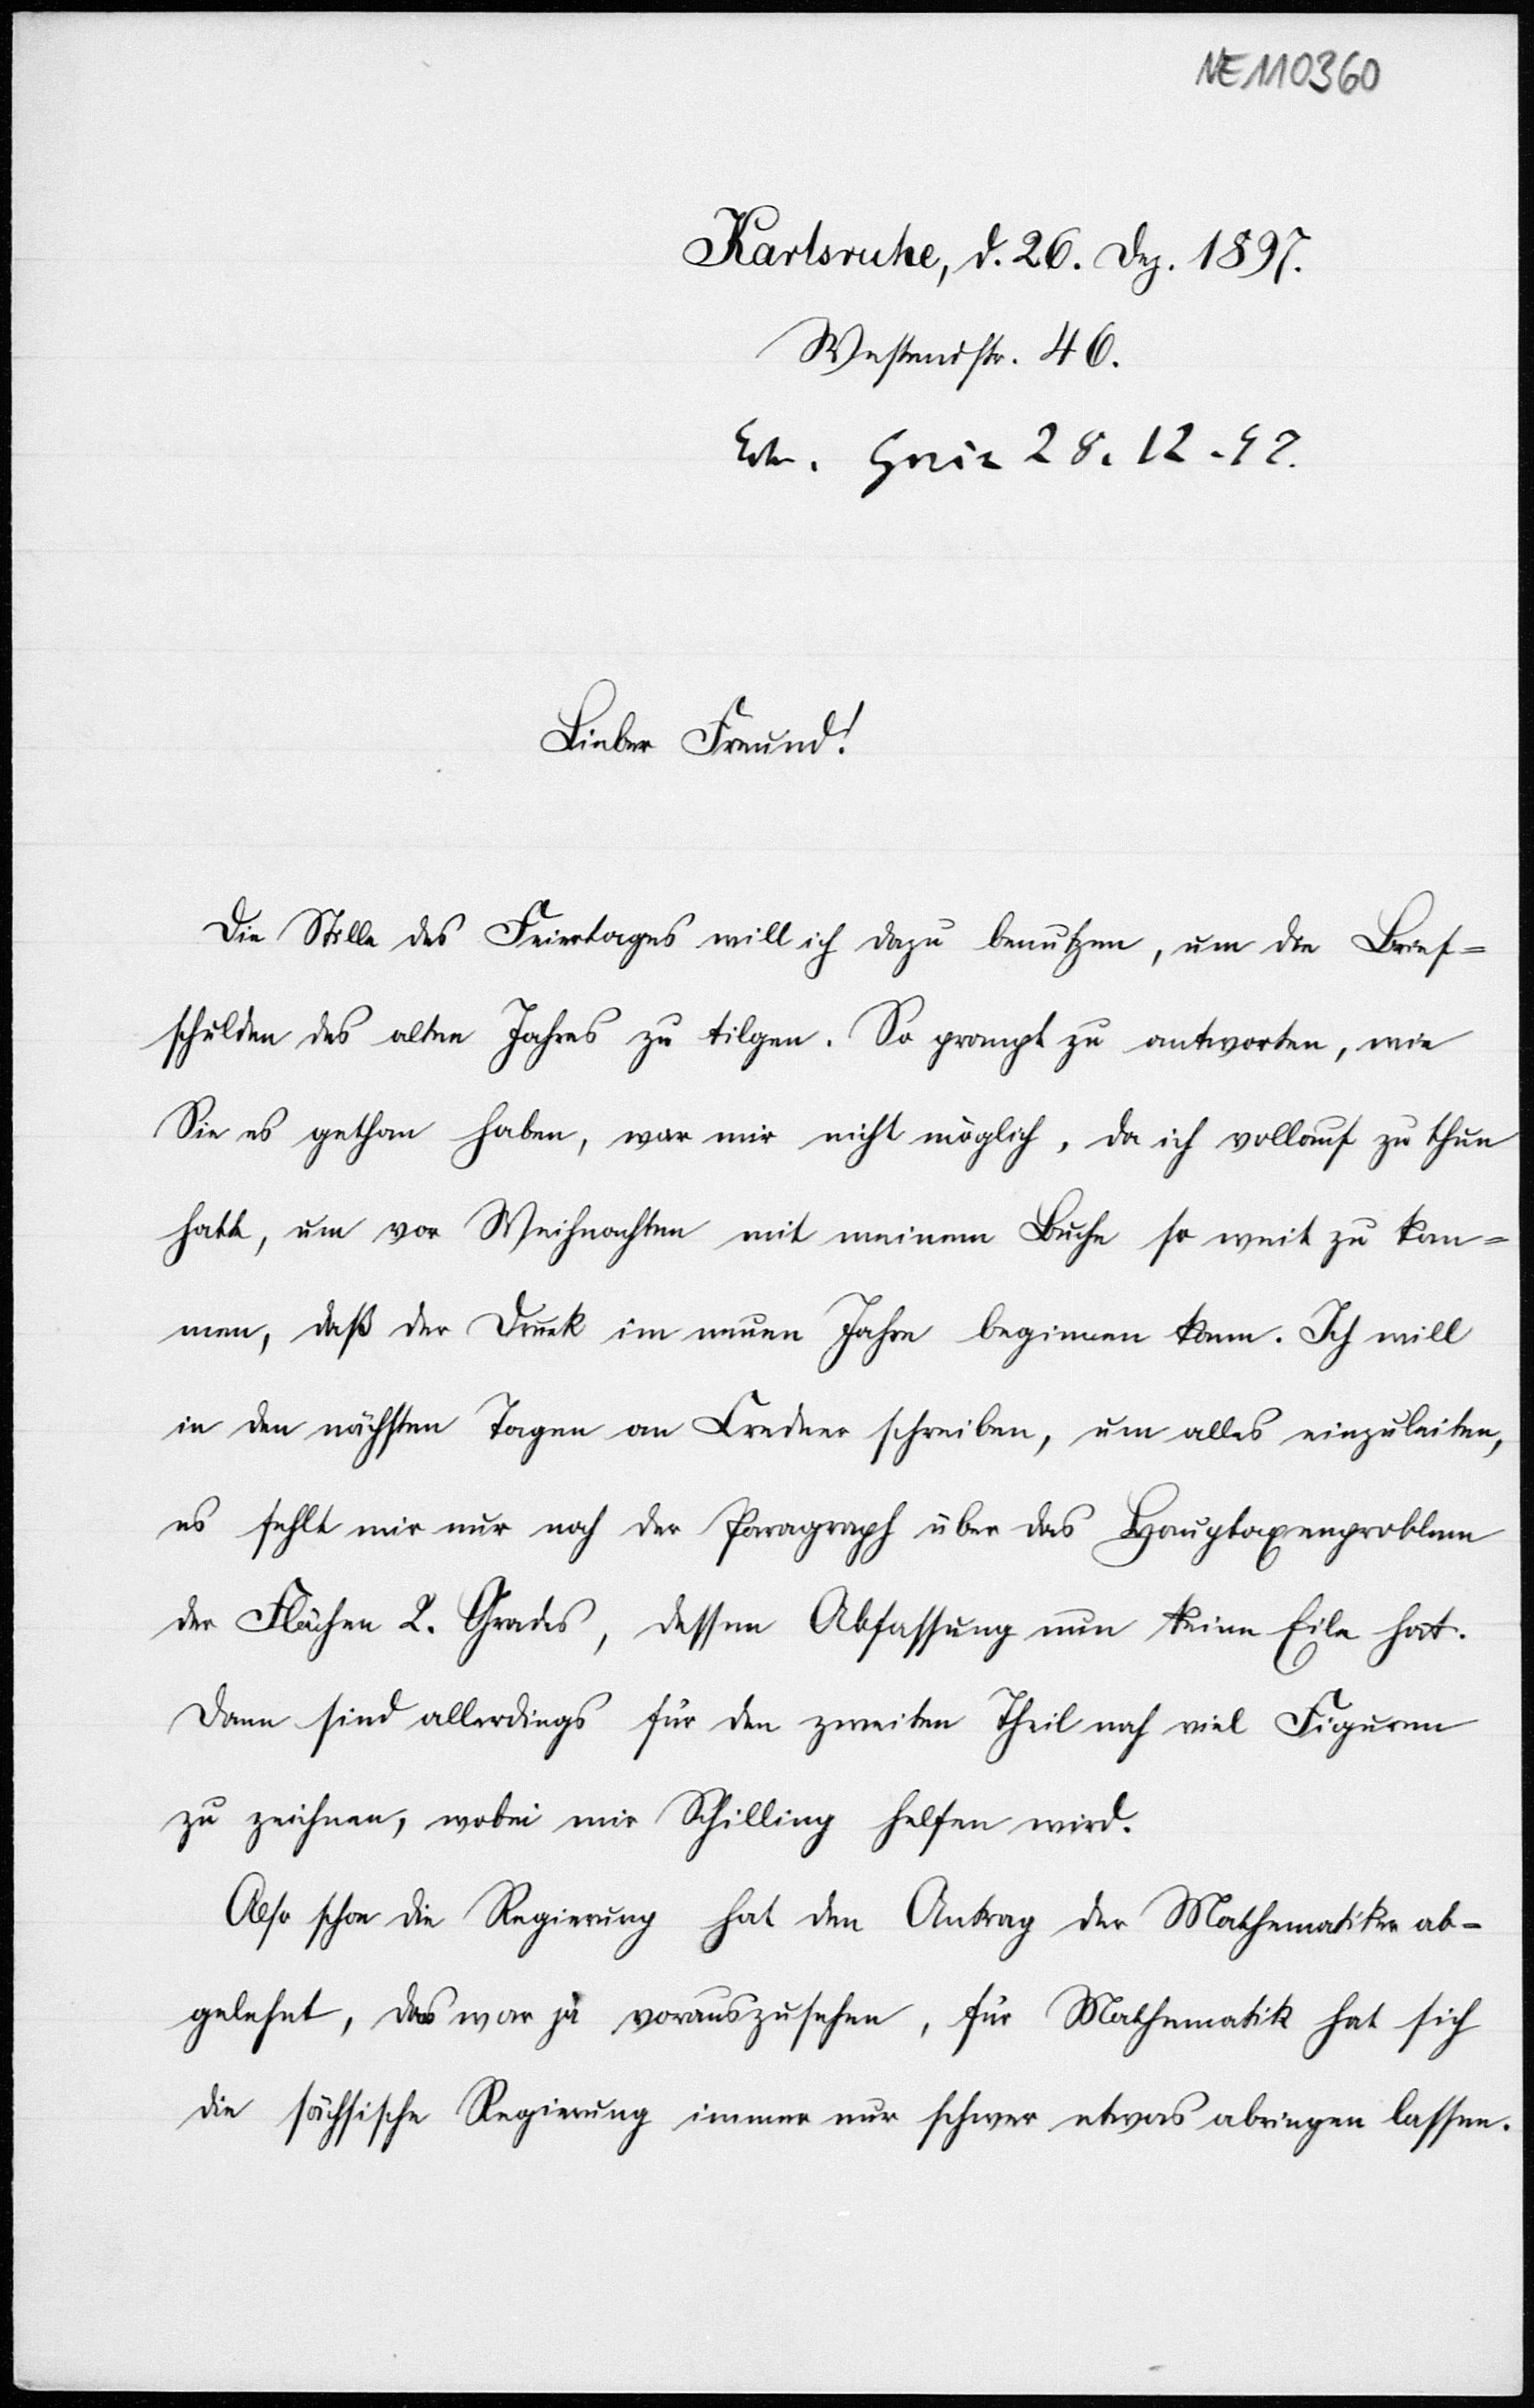 NE110360
Karlsruhe, d. 26. Dez. 1897.
Westendstr. 46.
28. 12. 97.
Lieber Freund!
Die Stille des Feiertages will ich dazu benutzen, um die Brief=
schulden des alten Jahres zu tilgen. So prompt zu antworten, wie
Sie es gethan haben, war mir nicht möglich, da ich vollauf zu thun
hatte, um vor Weihnachten mit meinem Buche so weit zu kom=
men, daß der Druck im neuen Jahre beginnen kann. Ich will
in den nächsten Tagen an Credner schreiben, um alles einzuleiten,
es fehlt mir nur noch der Paragraph über das Hauptaxenproblem
der Flächen 2. Grades, dessen Abfassung nun keine Eile hat.
Dann sind allerdings für den zweiten Theil noch viel Figuren
zu zeichnen, wobei mir Schilling helfen wird.
Also schon die Regierung hat den Antrag der Mathematiker ab-
gelehnt, das war ja vorauszusehen, für Mathematik hat sich
die sächsische Regierung immer nur schwer etwas abringen lassen.